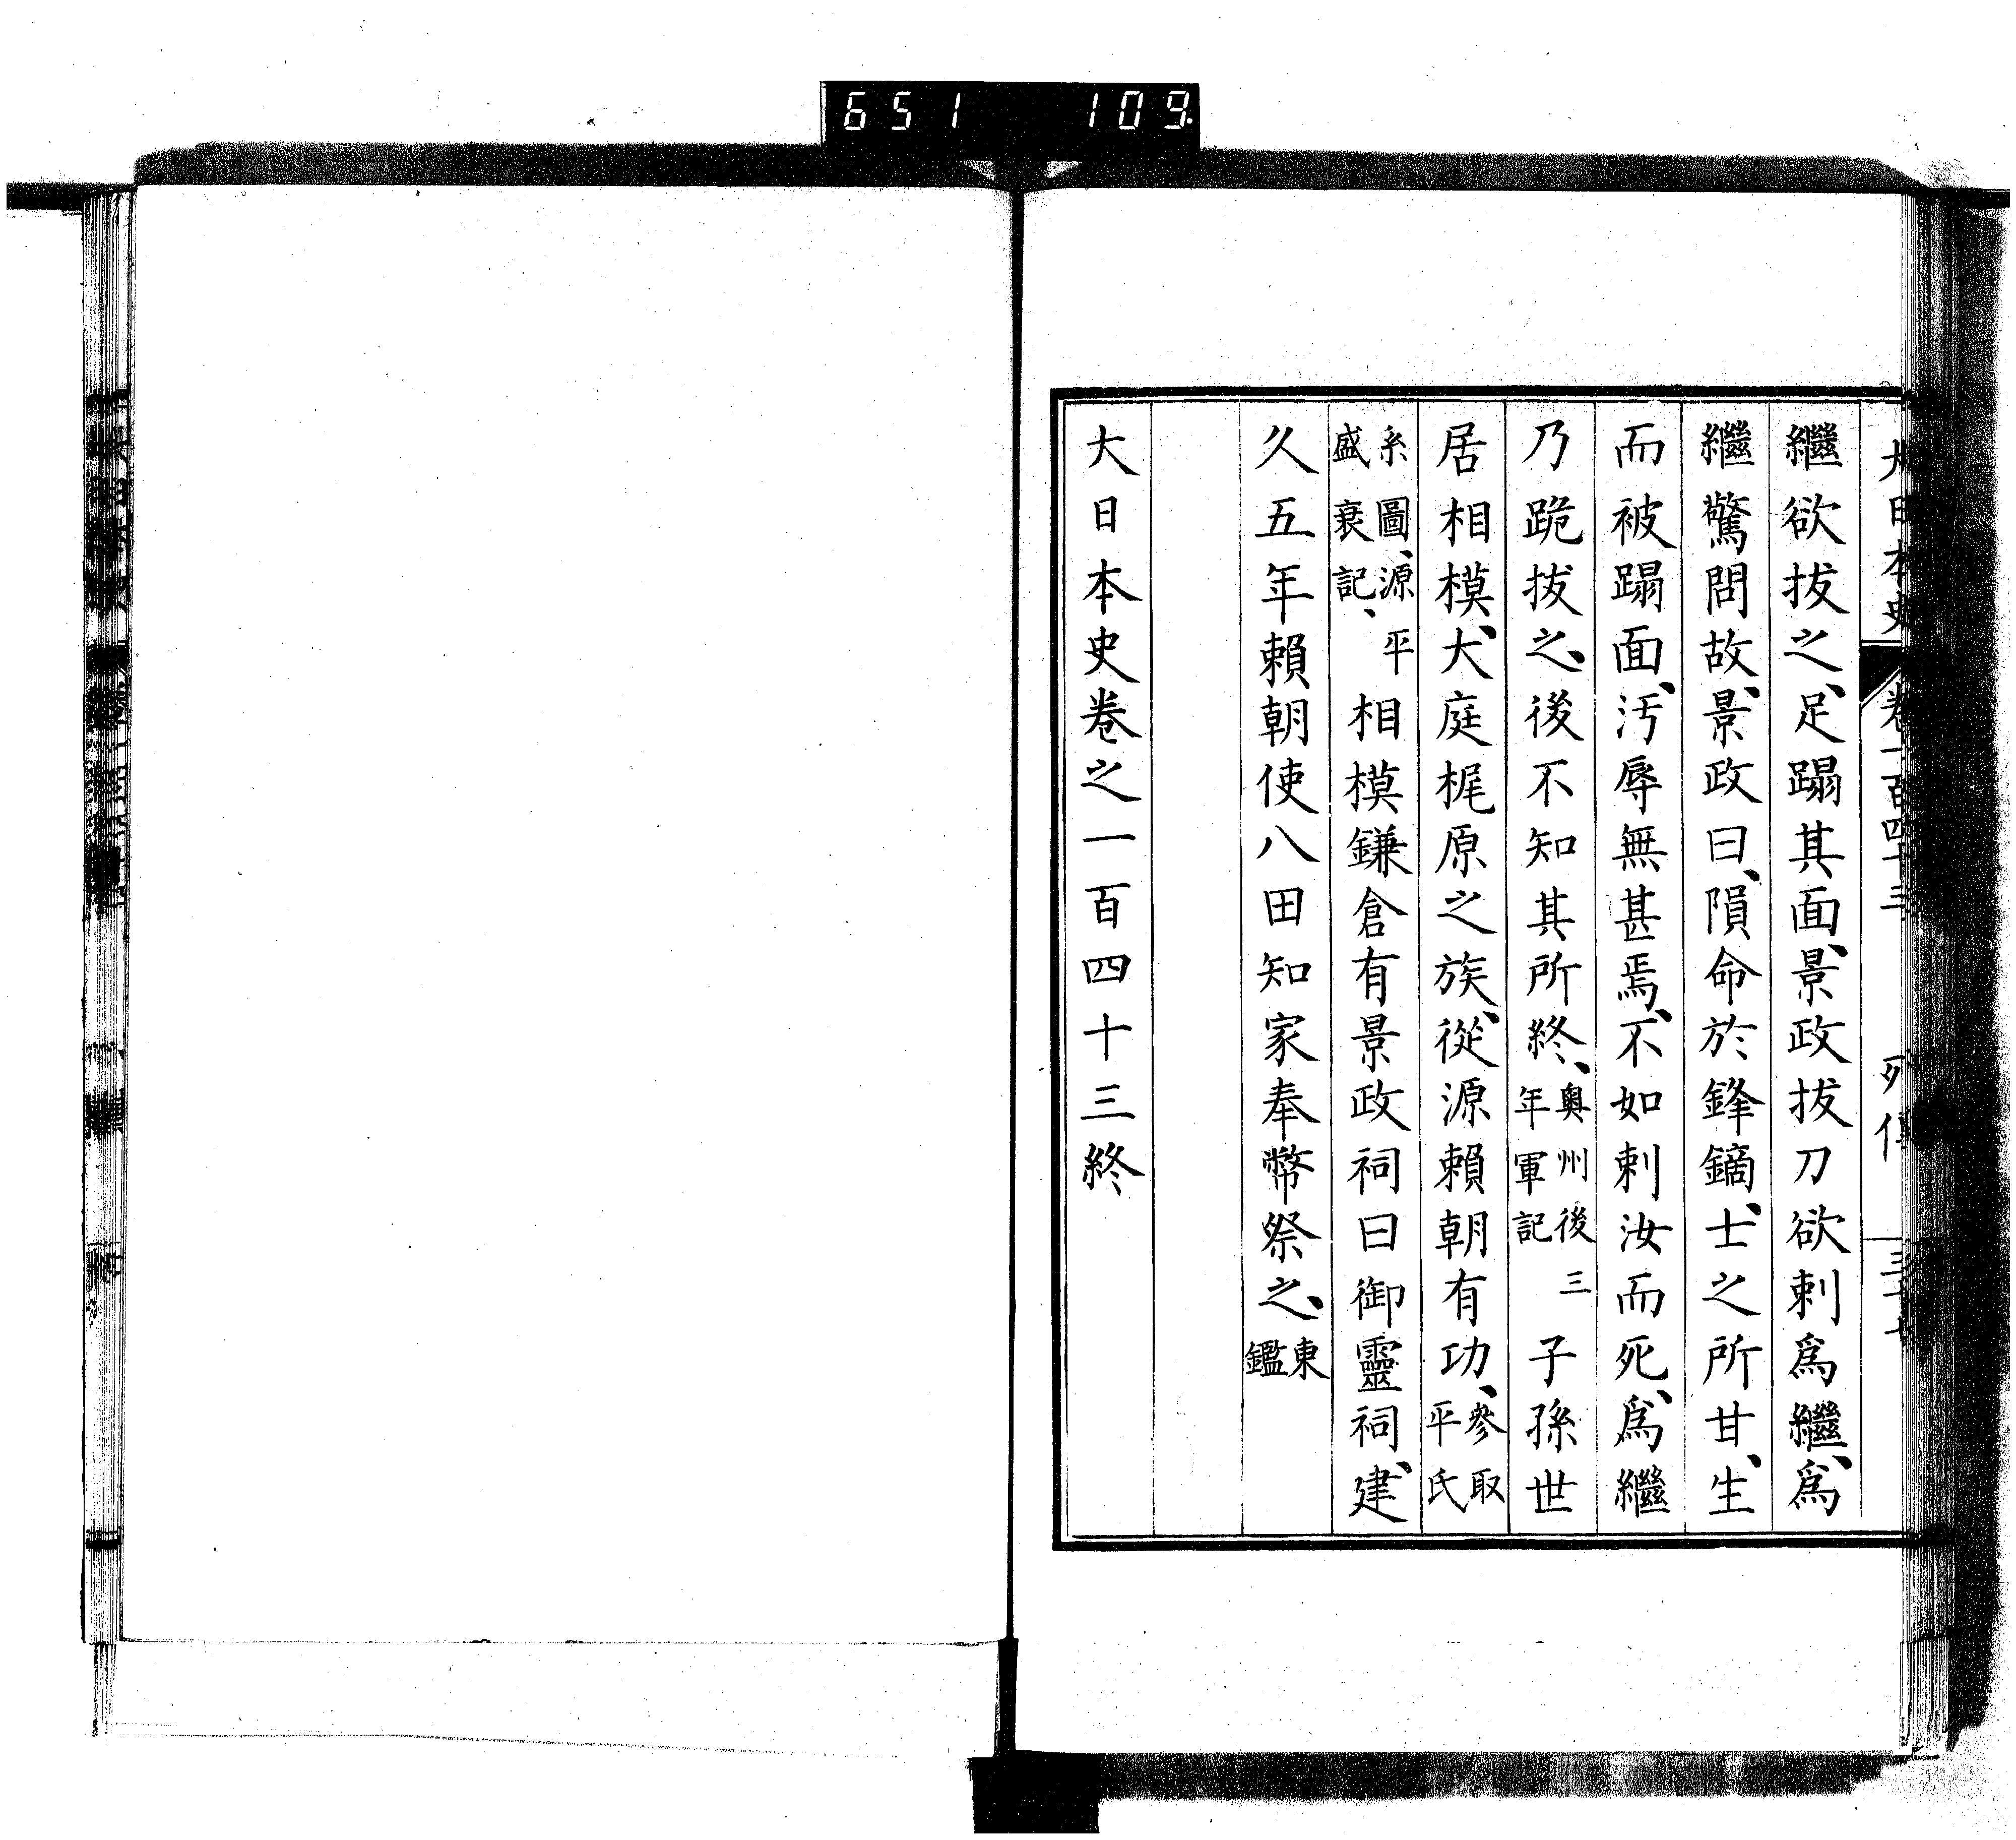 651 109.
大日本史 卷一百四十三 列傳
繼欲拔之、足蹋其面、景政拔刀欲刺爲繼、爲
繼驚問故、景政曰、隕命於鋒鏑、士之所甘、生
而被蹋面、汚辱無甚焉、不如刺汝而死、爲繼
乃跪拔之、後不知其所終、奥州後三年軍記子孫世
居相模、大庭梶原之族、從源賴朝有功、參取平氏
系圖、源平盛衰記、相模鎌倉有景政祠曰御靈祠、建
久五年賴朝使八田知家奉幣祭之、東鑑
大日本史卷之一百四十三終